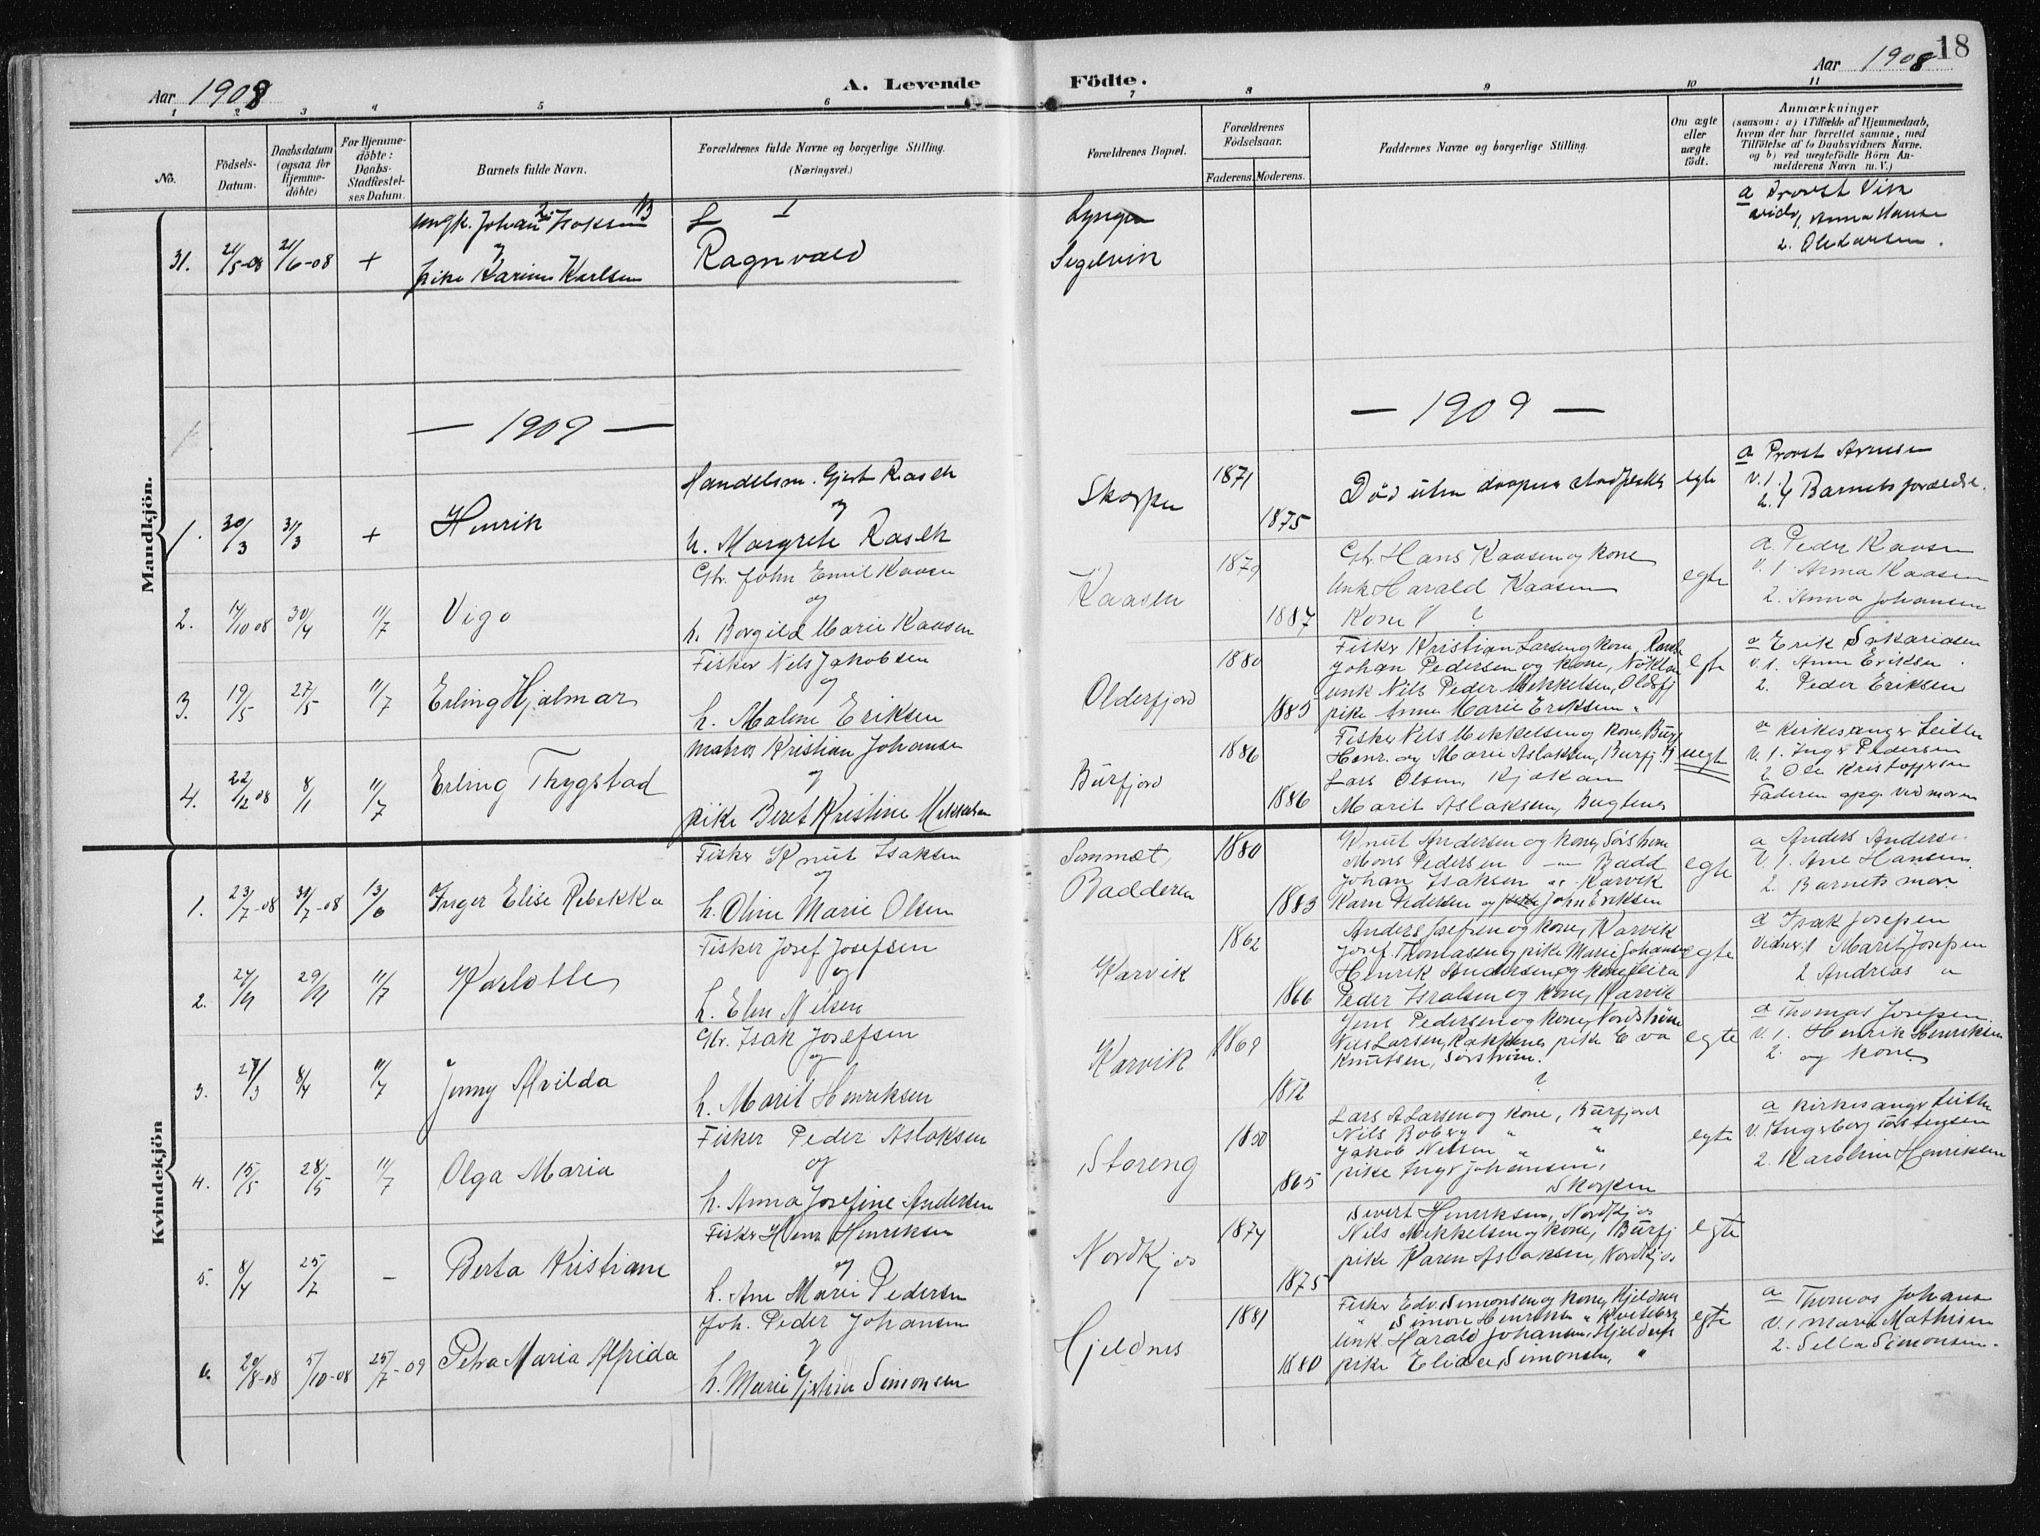 18
Aar 1908
A. Levende
Födte.
Aar 1908
1 2 3 4 5 6 7 8 9 10 11
No.
Födsels-
Datum.
Daabsdatum
(ogsaa for
Hjemme-
döbte)
For Hjemme-
döbte:
Daabs-
Stadfæstel-
ses Datum.
Barnets fulde Navn.
Forældrenes fulde Navne og borgerlige Stilling.
(Næringsvei.)
Forældrenes Bopæl.
Forældrenes
Födselsaar.
Faderens. Moderens.
Faddernes Navne og borgerlige Stilling.
Om ægte
eller
uægte
födt.
Anmærkninger
(saasom: a) i Tilfælde af Hjemmedaab,
hvem der har forrettet samme, med
Tilföielse af to Daabsvidners Navne.
og b) ved uægtefödte Börn An-
melderens Navn m. V.)
Mandkjön.
31. 21/5-08 21/6-08 +
ungk. Johan Isaksen
og
pike Karine Karlsen
Ragnvald
Lyngen
Segelvik
a Provst Vik
vidn. Anna Hansen
2. Ole Larsen.
— 1909 —
— 1909 —
1. 30/3 31/3 + Henrik
Handelsm. Gjert Rasch
og
h. Margrete Rasch
Skorpen
1871
1875
Död uten daapens stadfestelse
egte
a Provst Arnesen
v. 1. }
2. } Barnets forældre.
2. 17/10 08 30/4 11/7 Vigo
Gbr. John Emil Kaasen
og
h. Borgild Marie Kaasen
Kaasen
1879
1887
Gbr. Hans Kaasen og kone
Unk Harald Kaasen
Kone V ?
egte
a. Peder Kaasen
v. 1. Anna Kaasen
2. Anna Johansen
3. 19/5 27/5 11/7 Erling Hjalmar
Fisker Nils Jakobsen
og
h. Malene Eriksen
Olderfjord
1880
1885
Fisker Kristian Larsen og kone,
Johan Pedersen og kone,
unk Nils Peder Mikkelsen, Oldfj
pike Anne Marie Eriksen "
egte
a Erik Sakariasen
v. 1. Anne Eriksen.
2. Peder Eriksen
4. 22/12 08 8/1 11/7 Erling Thygstad
Matros Kristian Johansen
og
pike Beret Kristine Mikkelsen
Burfjord
1886
1886
Fisker Nils Mikkelsen og kone, Burfj
Henr. og Marie Aslaksen, Burfj.
Lars Olsen, Kjækan
Marit Aslaksen, Bugtenes
uegte
a Kirkesanger Seitlu
v. 1. Inger Pedersen
2. Ole Kristoffersen
Faderen opg. ved moren
Kvindekjön
1. 23/7-08 31/7-08 13/6 Inger Elise Rebekka
Fisker Knut Isaksen
og
h. Oline Marie Olsen
Sommæt,
Badderen
1880
1883
Knut Andersen og kone, Sörström
Mons Pedersen — Badd
Johan Isaksen " Karvik
Karn Pedersen og John Eriksen
egte
a Anders Andersen
v. 1. Ane Hansen.
2. Barnets mor
2. 29/11 11/7 Karlotte
Fisker Josef Josefsen
og
h. Elen Nilsen
Karvik
1862
1866
Anders Josefsen og kone, Karvik
Josef Thomassen og pike Marie Johansen
Henrik Andersen og kone,
Peder Isralsen og kone, Karvik
egte
a Isak Josefsen
Vidner: 1 Marit Josefsen
2 Andrias "
3. 27/3 8/4 11/7 Jenny Alvilda
Gbr. Isak Josefsen
og
h. Marit Henriksen
Karvik
1869
1872
Jens Pedersen og kone, Nordström
Nils Larsen, pike Eva
Knutsen, Sörström.
?
egte
a Thomas Josefsen.
v. 1. Henrik Henriksen
2. og kone
4. 15/5 28/5 11/7 Olga Maria
Fisker Peder Aslaksen
og
h. Anna Josefine Andersen
Storeng
1865
Lars A Larsen og kone, Burfjord
Nils Boberg " "
Jakob Nilsen " "
pike Inger Johansen,
Skorpen
egte
a Kirkesanger Seitlu
v. Ingeborg
2. Karoline Henriksen
5. 8/4 25/7 – Berta Kristiane
Fisker Hans Henriksen
og
h. Ane Marie Pedersen
Nordkjos
1874
1875
Sivert Henriksen, Nordkjos
Nils Mikkelsen og kone, Burfj
pike Karen Aslaksen, Nordkjos
egte
6. 20/8-08 5/10-08 25/7-09 Petra Maria Alfrida
Joh. Peder Johansen
og
h. Marie Simonsen
Hjeldnes
1881
1880
Fisker Edv. Simonsen og kone, Hjeldnes
" Simon Henriksen "
Unk Harald Johansen, Hjeldnes
pike Elida Simonsen, "
egte
a Thomas Johansen
v. 1 Maria Mathisen
2. Sella Simonsen.